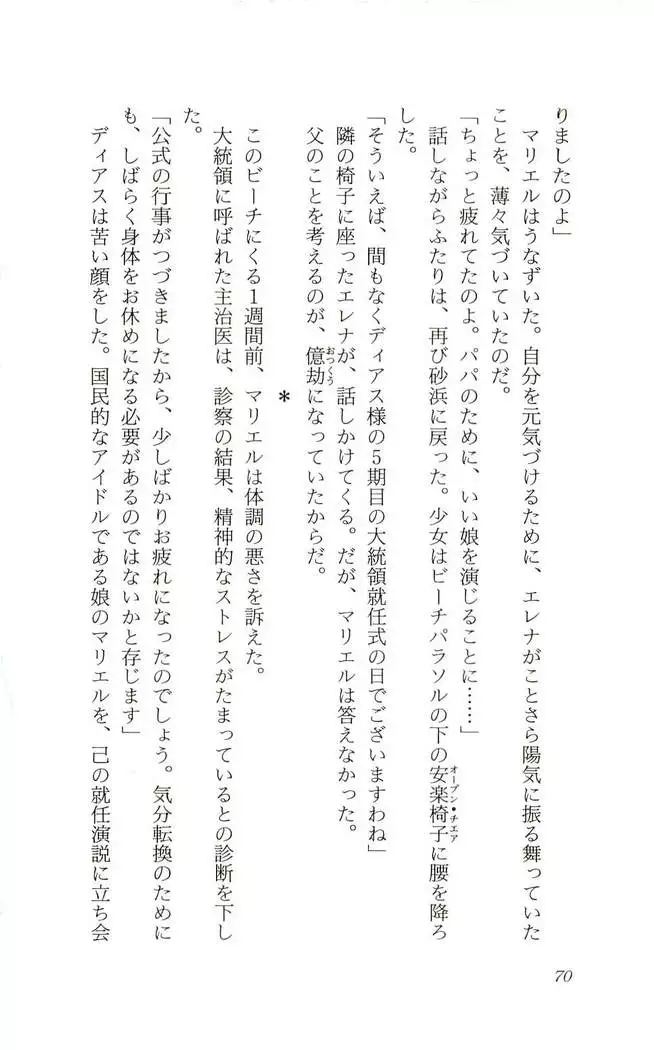 りましたのよ」
マリエルはうなずいた。自分を元気づけるために、エレナがことさら陽気に振る舞っていた
ことを、薄々気づいていたのだ。
「ちょっと疲れてたのよ。パパのために、いい娘を演じることに……」
話しながらふたりは、再び砂浜に戻った。少女はビーチパラソルの下の安楽椅子に腰を降ろ
オープン・チエア
した。
「そういえば、間もなくディアス様の5期目の大統領就任式の日でございますわね」
隣の椅子に座ったエレナが、話しかけてくる。だが、マリエルは答えなかった。
父のことを考えるのが、億劫になっていたからだ。
おっくう
*
このビーチにくる1週間前、マリエルは体調の悪さを訴えた。
大統領に呼ばれた主治医は、診察の結果、精神的なストレスがたまっているとの診断を下し
た。
「公式の行事がつづきましたから、少しばかりお疲れになったのでしょう。気分転換のために
も、しばらく身体をお休めになる必要があるのではないかと存じます」
ディアスは苦い顔をした。国民的なアイドルである娘のマリエルを、己の就任演説に立ち会
70